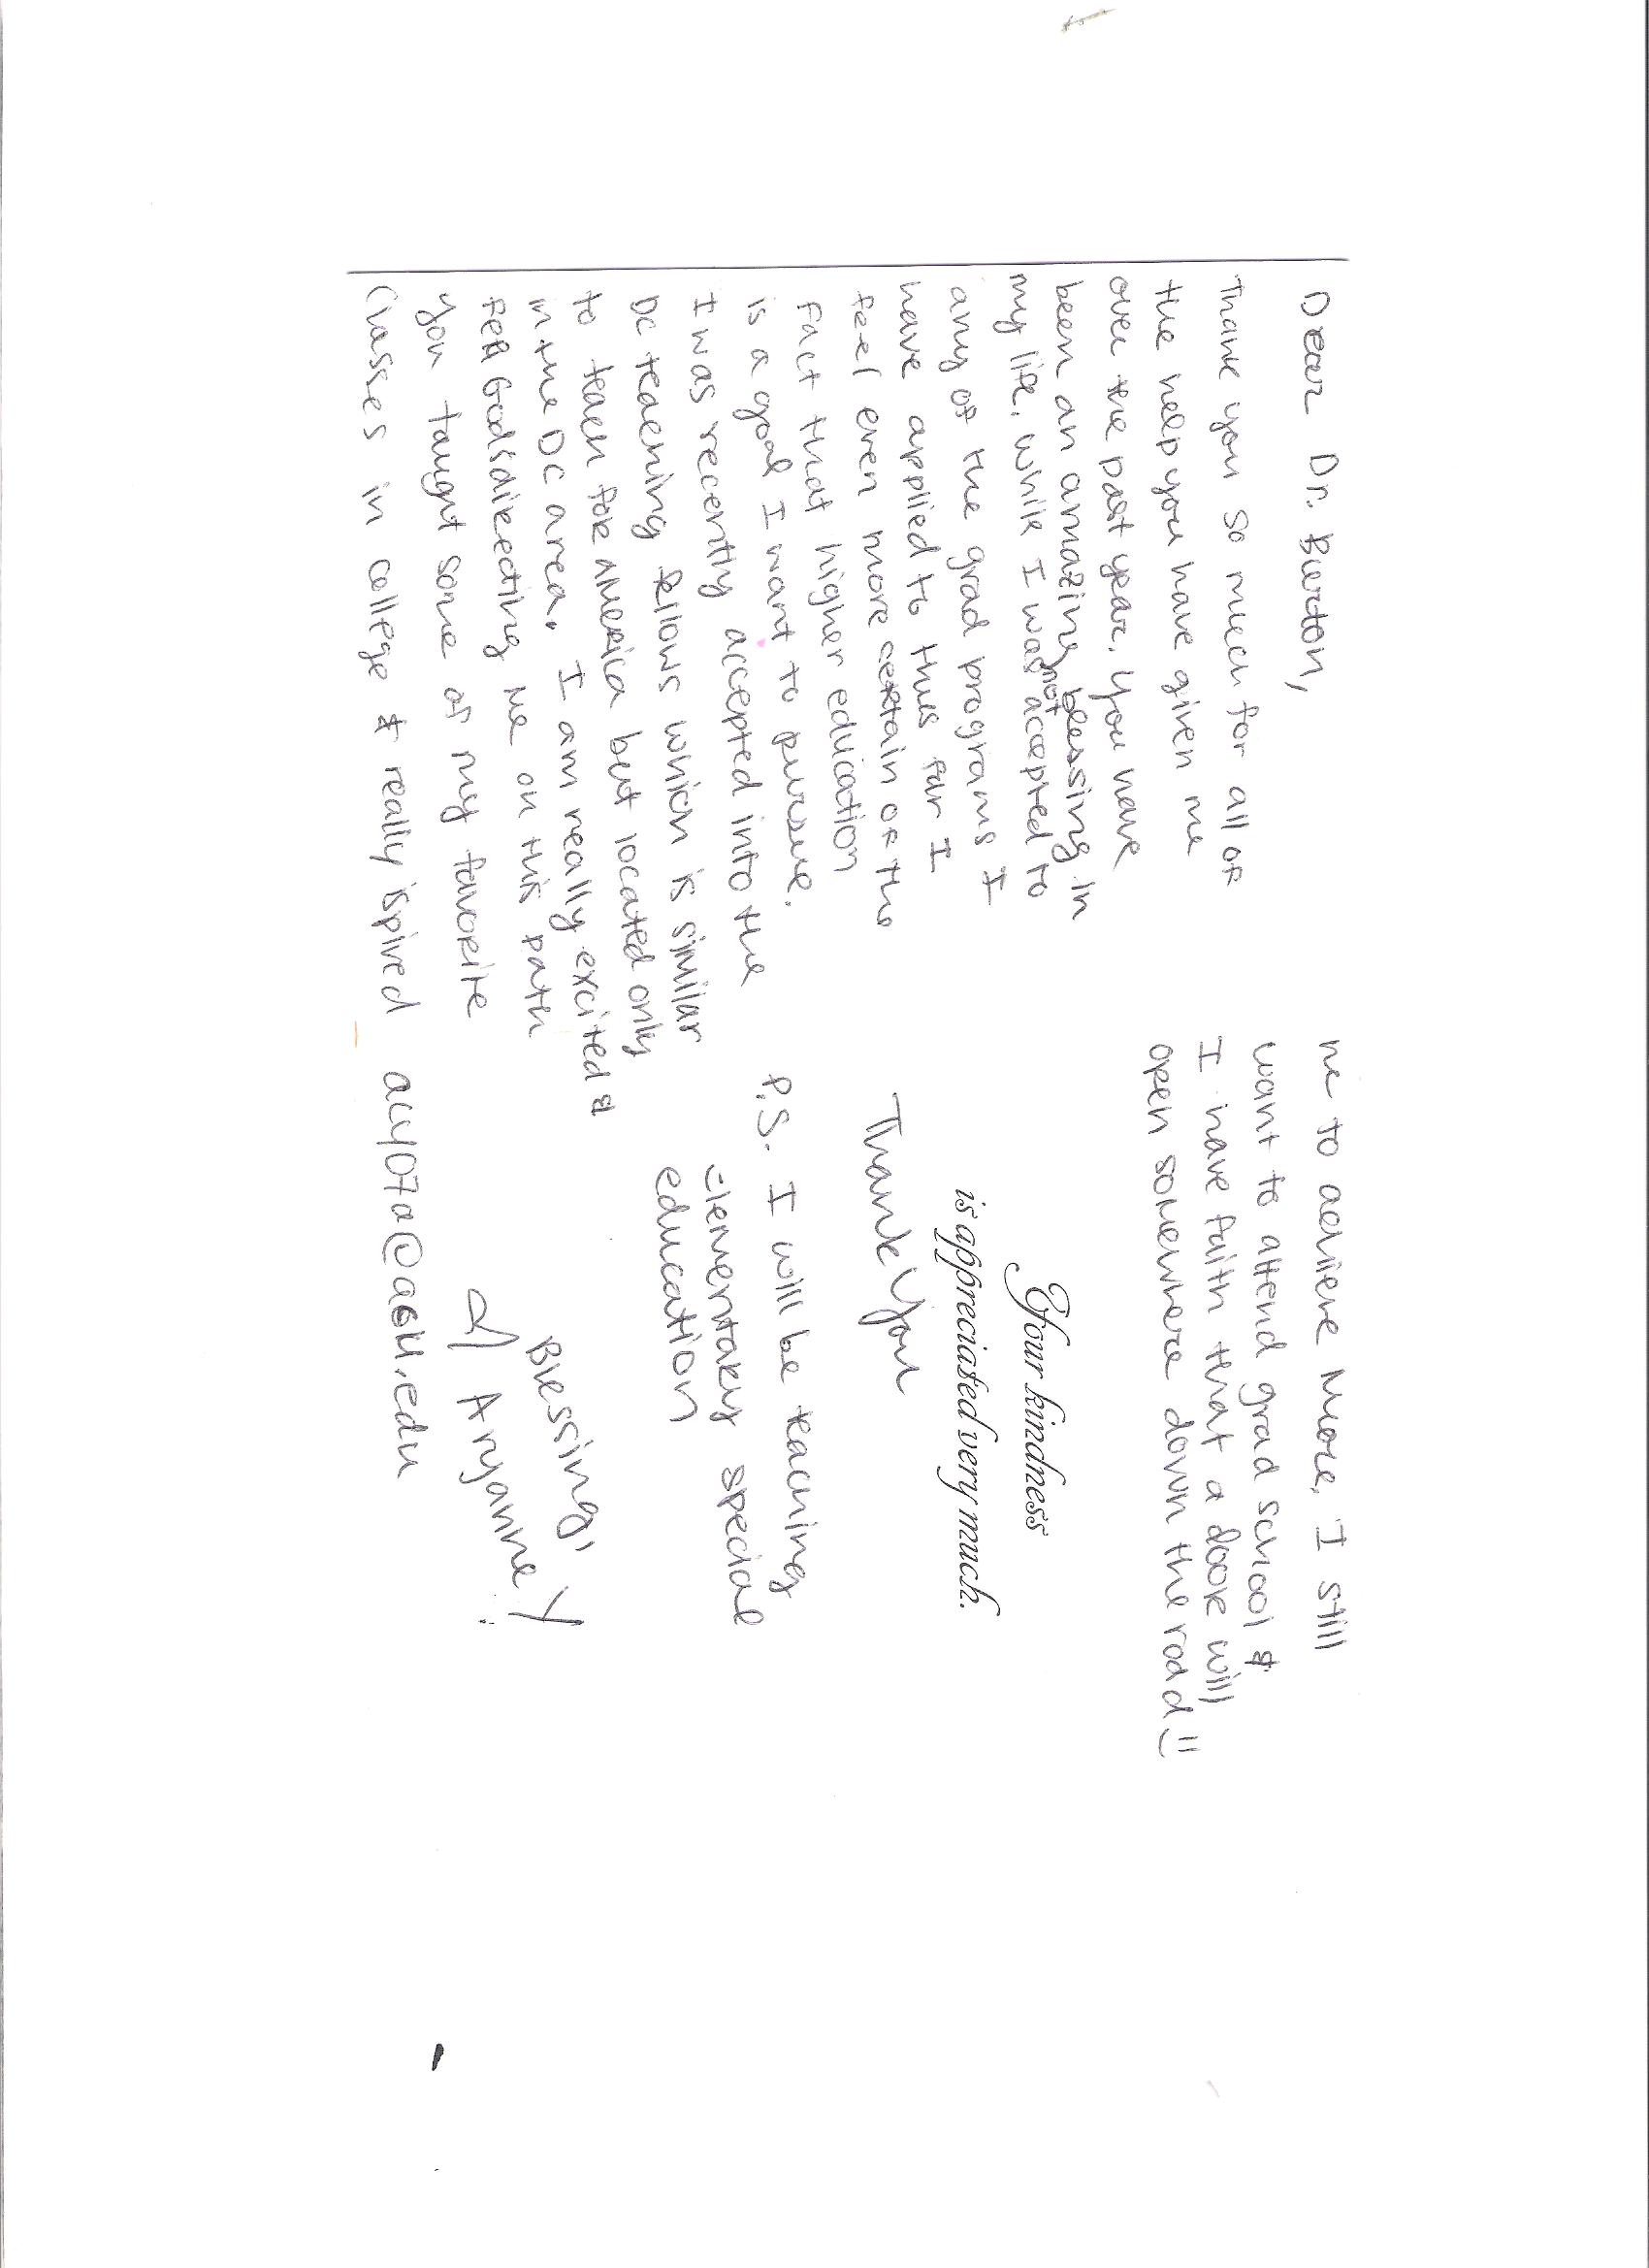 Dear Dr. Burton,
Thank you so much for all of
the help you have given me
over the past year. You have
been an amazing blessing in
my life. While I was not accepted to
any of the grad programs I
have applied to thus far I
feel even more certain of the
fact that higher education
is a goal I want to pursue.
I was recently accepted into the
DC teaching fellows which is similar
to teach for america but located only
in the DC area. I am really excited &
feel God's directing me on this path
you taught some of my favorite
Classes in college & really ispired
me to achieve more. I still
want to attend grad school &
I have faith that a door will
open somewhere down the road
Your kindness
is appreciated very much.
Thank You
P.S. I will be teaching
elementary special
education
Blessings,
Aryanne
acy07a@acu.edu